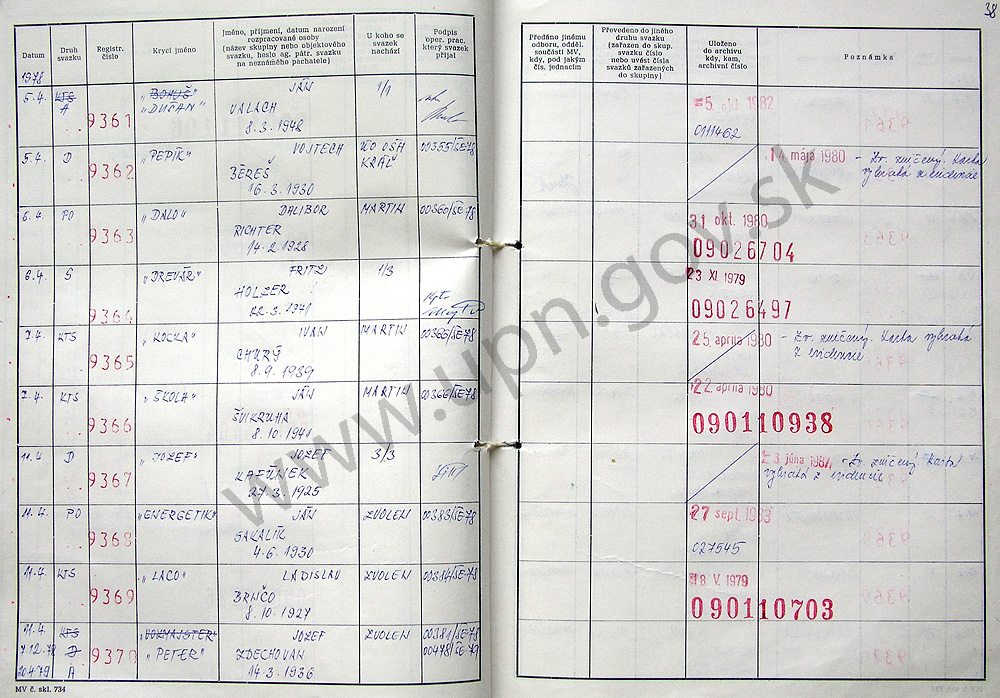 38
Datum
Druh svazku
Registr. číslo
Krycí jméno
Jméno, příjmení, datum narození
rozpracované osoby
(název skupiny nebo objektového
svazku, heslo ag. pátr. svazku
na neznámého pachatele)
U koho se
svazek
nachází
Podpis
oper. prac.
který svazek
přijal
Předáno jinému
odboru, odděl.
součásti MV,
kdy, pod jakým
čís. jednacím
Převedeno do jiného
druhu svazku
(zařazen do skup.
svazku číslo
nebo uvést čísla
svazků zařazených
do skupiny)
Uloženo
do archivu
kdy, kam,
archivní číslo
Poznámka
1978
5.4. KTS "BOHUŠ" JÁN 1/1
A 9361 "DUŠAN" VALACH
8.3.1948
5. okt. 1982
0111462
5.4. D "PEPÍK" VOJTECH 00355/SE-78
9362 BÉREŠ KRÁĽ
16.3.1930
14. mája 1980 - Zv. zničený. Karta
vybratá z evidencie
6.4. PO "DALO" DALIBOR MARTIN 00360/SE-78
9363 RICHTER
14.2.1928
31. okt. 1980
09026704
6.4. S "DREVÁR" FRITZ 1/3
9364 HOLZER
22.3.1941
23. XI. 1979
09026497
7.4. KTS "KOCKA" IVAN MARTIN 00365/SE-78
9365 CHURÝ
8.9.1939
25. apríla 1980 - Zv. zničený. Karta vybratá
z evidencie
7.4. KTS "ŠKOLA" JÁN MARTIN 00366/SE-78
9366 ŠVIKRUHA
8.10.1941
22. apríla 1980
090110938
11.4. D "JOZEF" JOZEF 3/3
9367 KAFÚNEK
27.3.1925
3. júna 1987 - Zv. zničený Karta
vybratá z evidencie
11.4. PO "ENERGETIK" JÁN ZVOLEN 00383/SE-78
9368 SAKALÍK
4.6.1930
27. sept. 1983
027545
11.4. KTS "LACO" LADISLAV ZVOLEN 00384/SE-78
9369 BRNČO
8.10.1927
18. V. 1979
090110703
11.4. KTS "VOZMAJSTER" JOZEF ZVOLEN 00381/SE-78
7.12.78 D 9370 "PETER" ZDECHOVAN 00478/SE-79
20.4.79 A 14.3.1936
MV č. skl. 734
www.upn.gov.sk